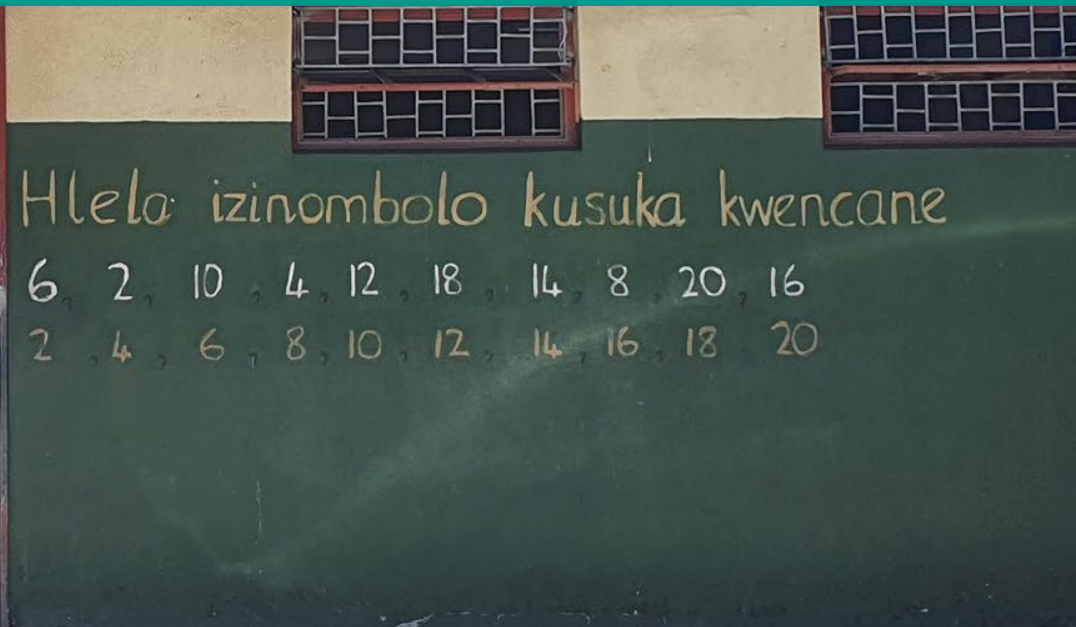 Hlela izinombolo kusuka kwencane
6, 2, 10, 4, 12, 18, 14, 8, 20, 16
2, 4, 6, 8, 10, 12, 14, 16, 18 20